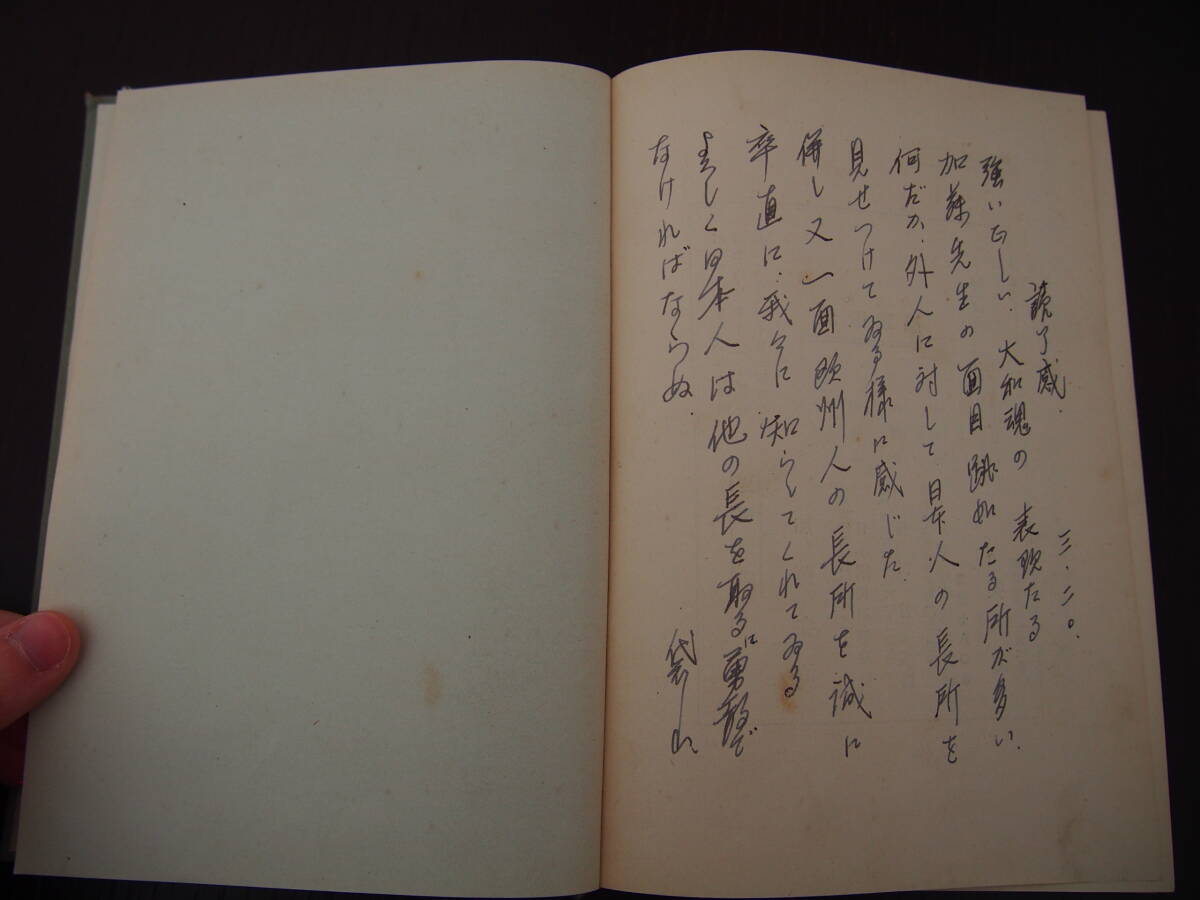 読了感. 三.二〇.
強い正しい. 大和魂の 表現たる
加藤先生の面目躍如たる所が多い.
何だか. 外人に対して日本人の長所を
見せつけてゐる様に感じた.
併し又一面欧州人の長所を誠に
卒直に. 我々に知らしてくれてゐる
よろしく日本人は他の長を取るに勇敢で
なければならぬ.